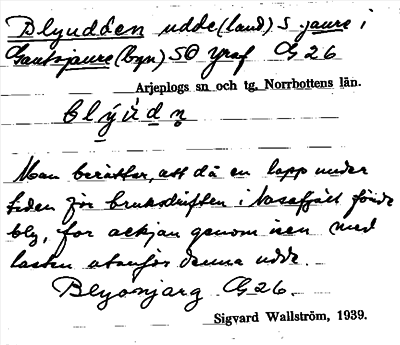 Blyudden udde (land) S. jaure i
Gautojaure (byn) SO Graf G 26
Arjeplogs sn och tg. Norrbottens län.
blýùdn̥
Man berättar, att då en lapp under
tiden för bruksdriften i Nasafjäll förde
bly, for ackjan genom isen med
lasten utanför denna udde.
Blyonjarg G 26.
Sigvard Wallström, 1939.